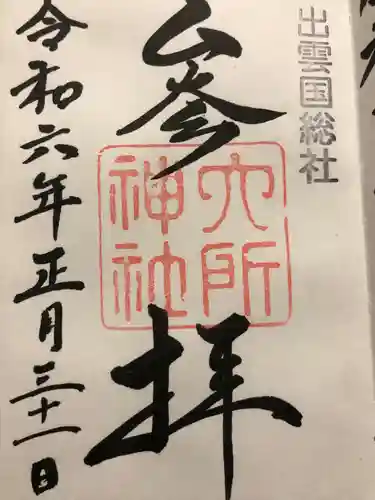 出雲国総社
參拝
六所
神社
令和六年正月三十一日